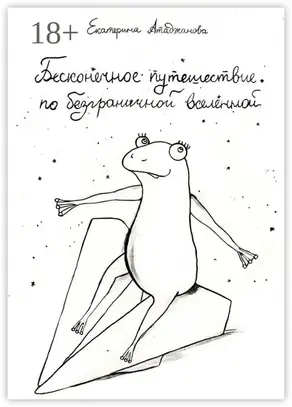 18+ Екатерина Атаджанова
Бесконечное путешествие
по безграничной вселенной